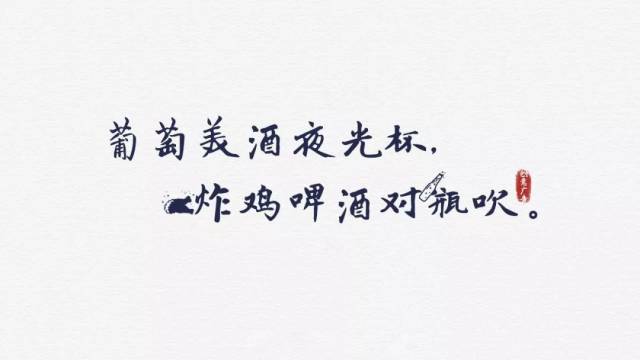 葡萄美酒夜光杯,
炸鸡啤酒对瓶吹。